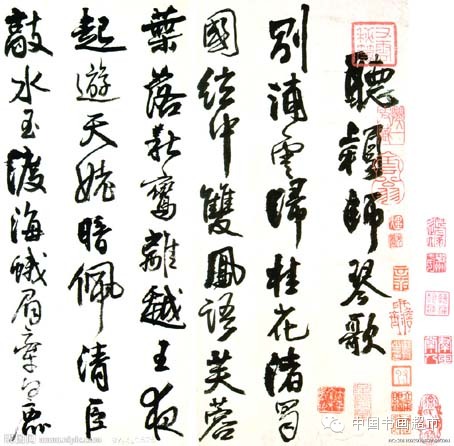 聽穎師琴歌
別浦雲歸桂花渚蜀
國絃中雙鳳語芙蓉
葉落秋鸞離越王夜
起遊天姥暗佩清臣
敲水玉渡海蛾眉牽白鹿
中国书画超市